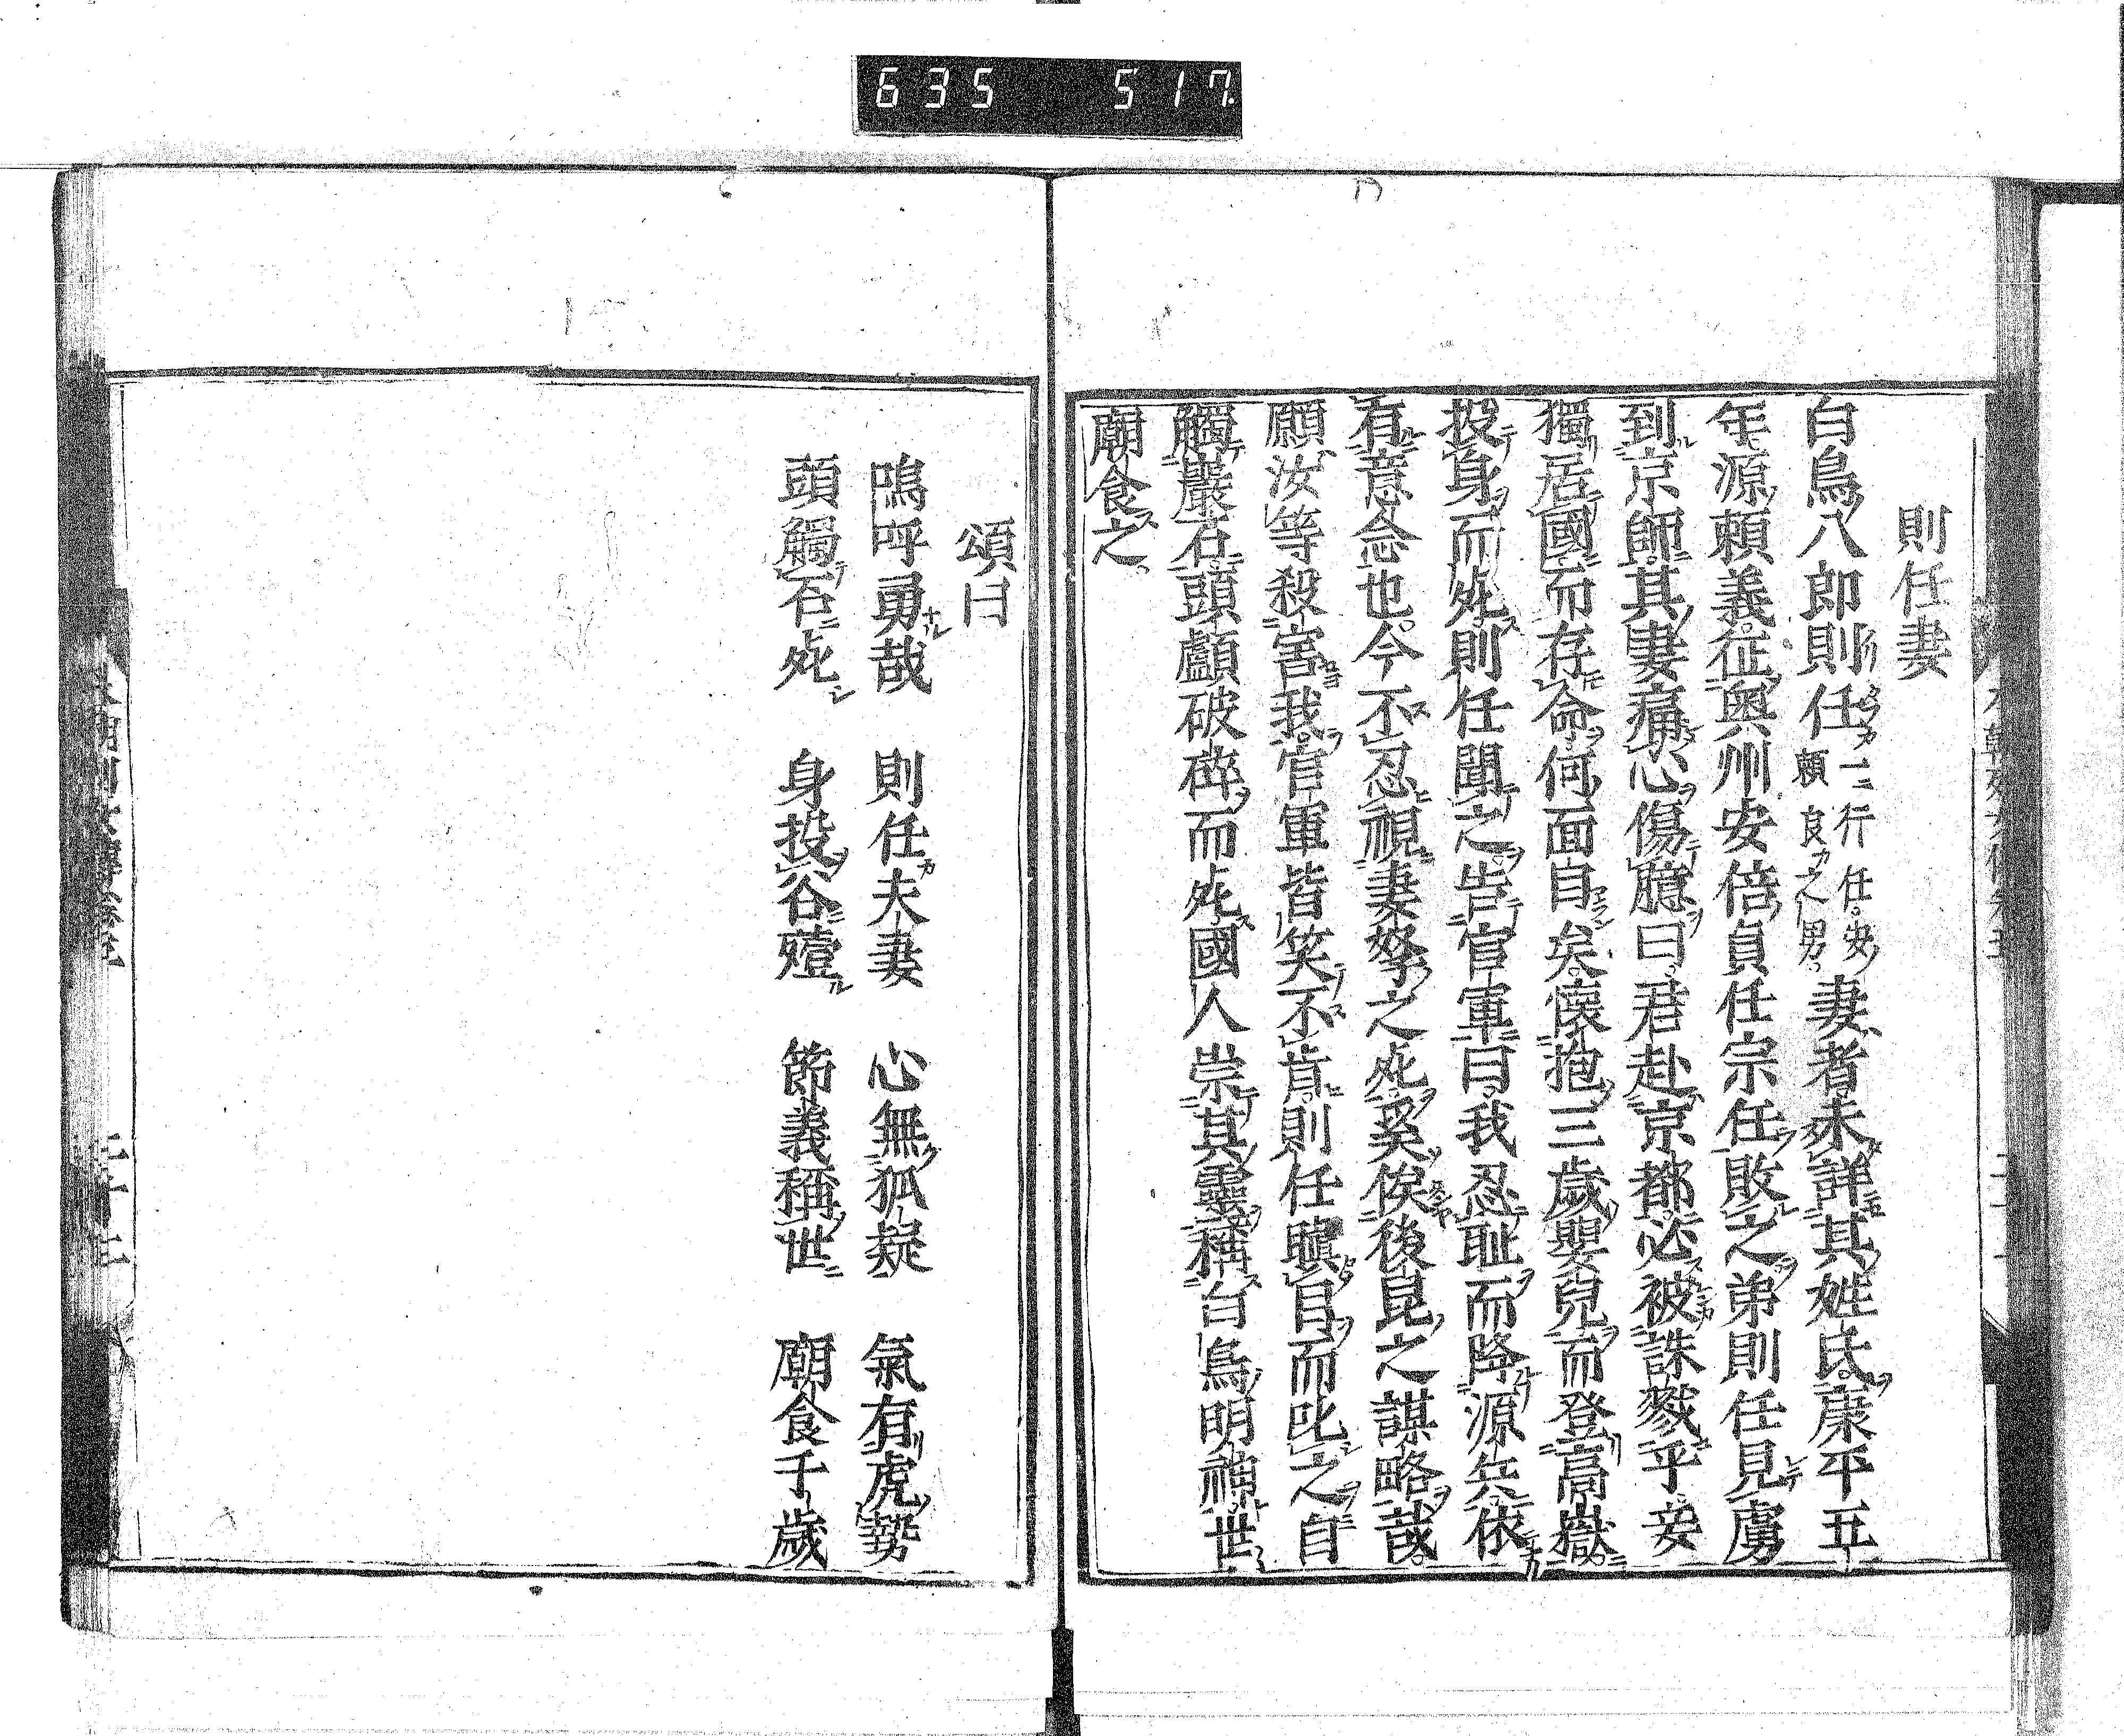 635 517
則任妻
白鳥八郎則任一ニ行任安頼良カ之男妻者未詳其姓氏康平五
年源頼義征奥州安倍貞任宗任敗之弟則任見虜
到京師其妻痛心傷臆曰君赴京都必被誅戮乎妾
獨居國而存命何面目矣懷抱三歳嬰兒而登高嶽
投身而死則任聞之告官軍曰我忍耻而降源兵依
有意念也今不忍視妻孥之死奚俟後昆之謀略哉
願汝等殺害我官軍皆笑不肯則任瞋目而叱之自
觸巖石頭顱破碎而死國人崇其靈稱白鳥明神世
廟食之
頌曰
嗚呼勇哉 則任夫妻 心無狐疑 氣有虎勢
頭觸石死 身投谷殪 節義稱世 廟食千歲